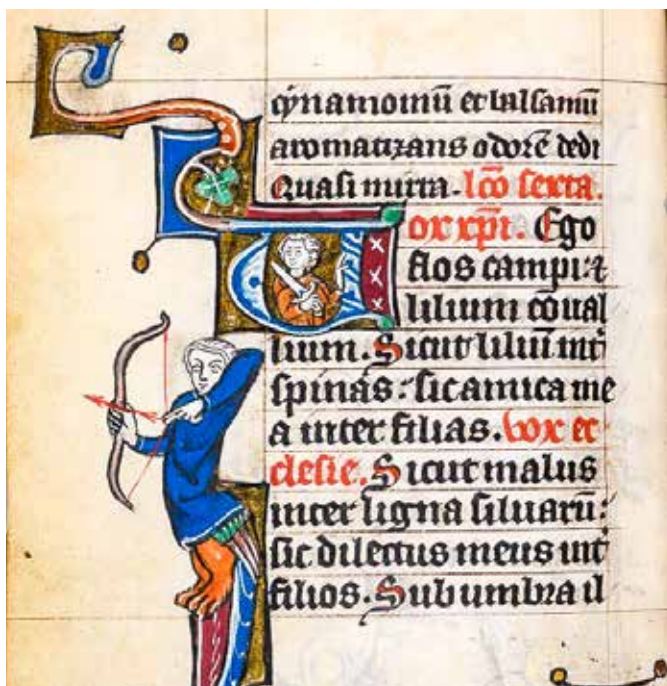 cynamomū et balsamū
aromatizans odorē dedi
Quasi mirra. lc̄o sexta.
Vox xp̄i. Ego
flos campi: ⁊
lilium cōual
lium. Sicut liliū int᷑
spinas: sic amica me
a inter filias. Vox ec
clesie. Sicut malus
inter ligna siluarū:
sic dilectus meus int᷑
filios. Sub umbra il